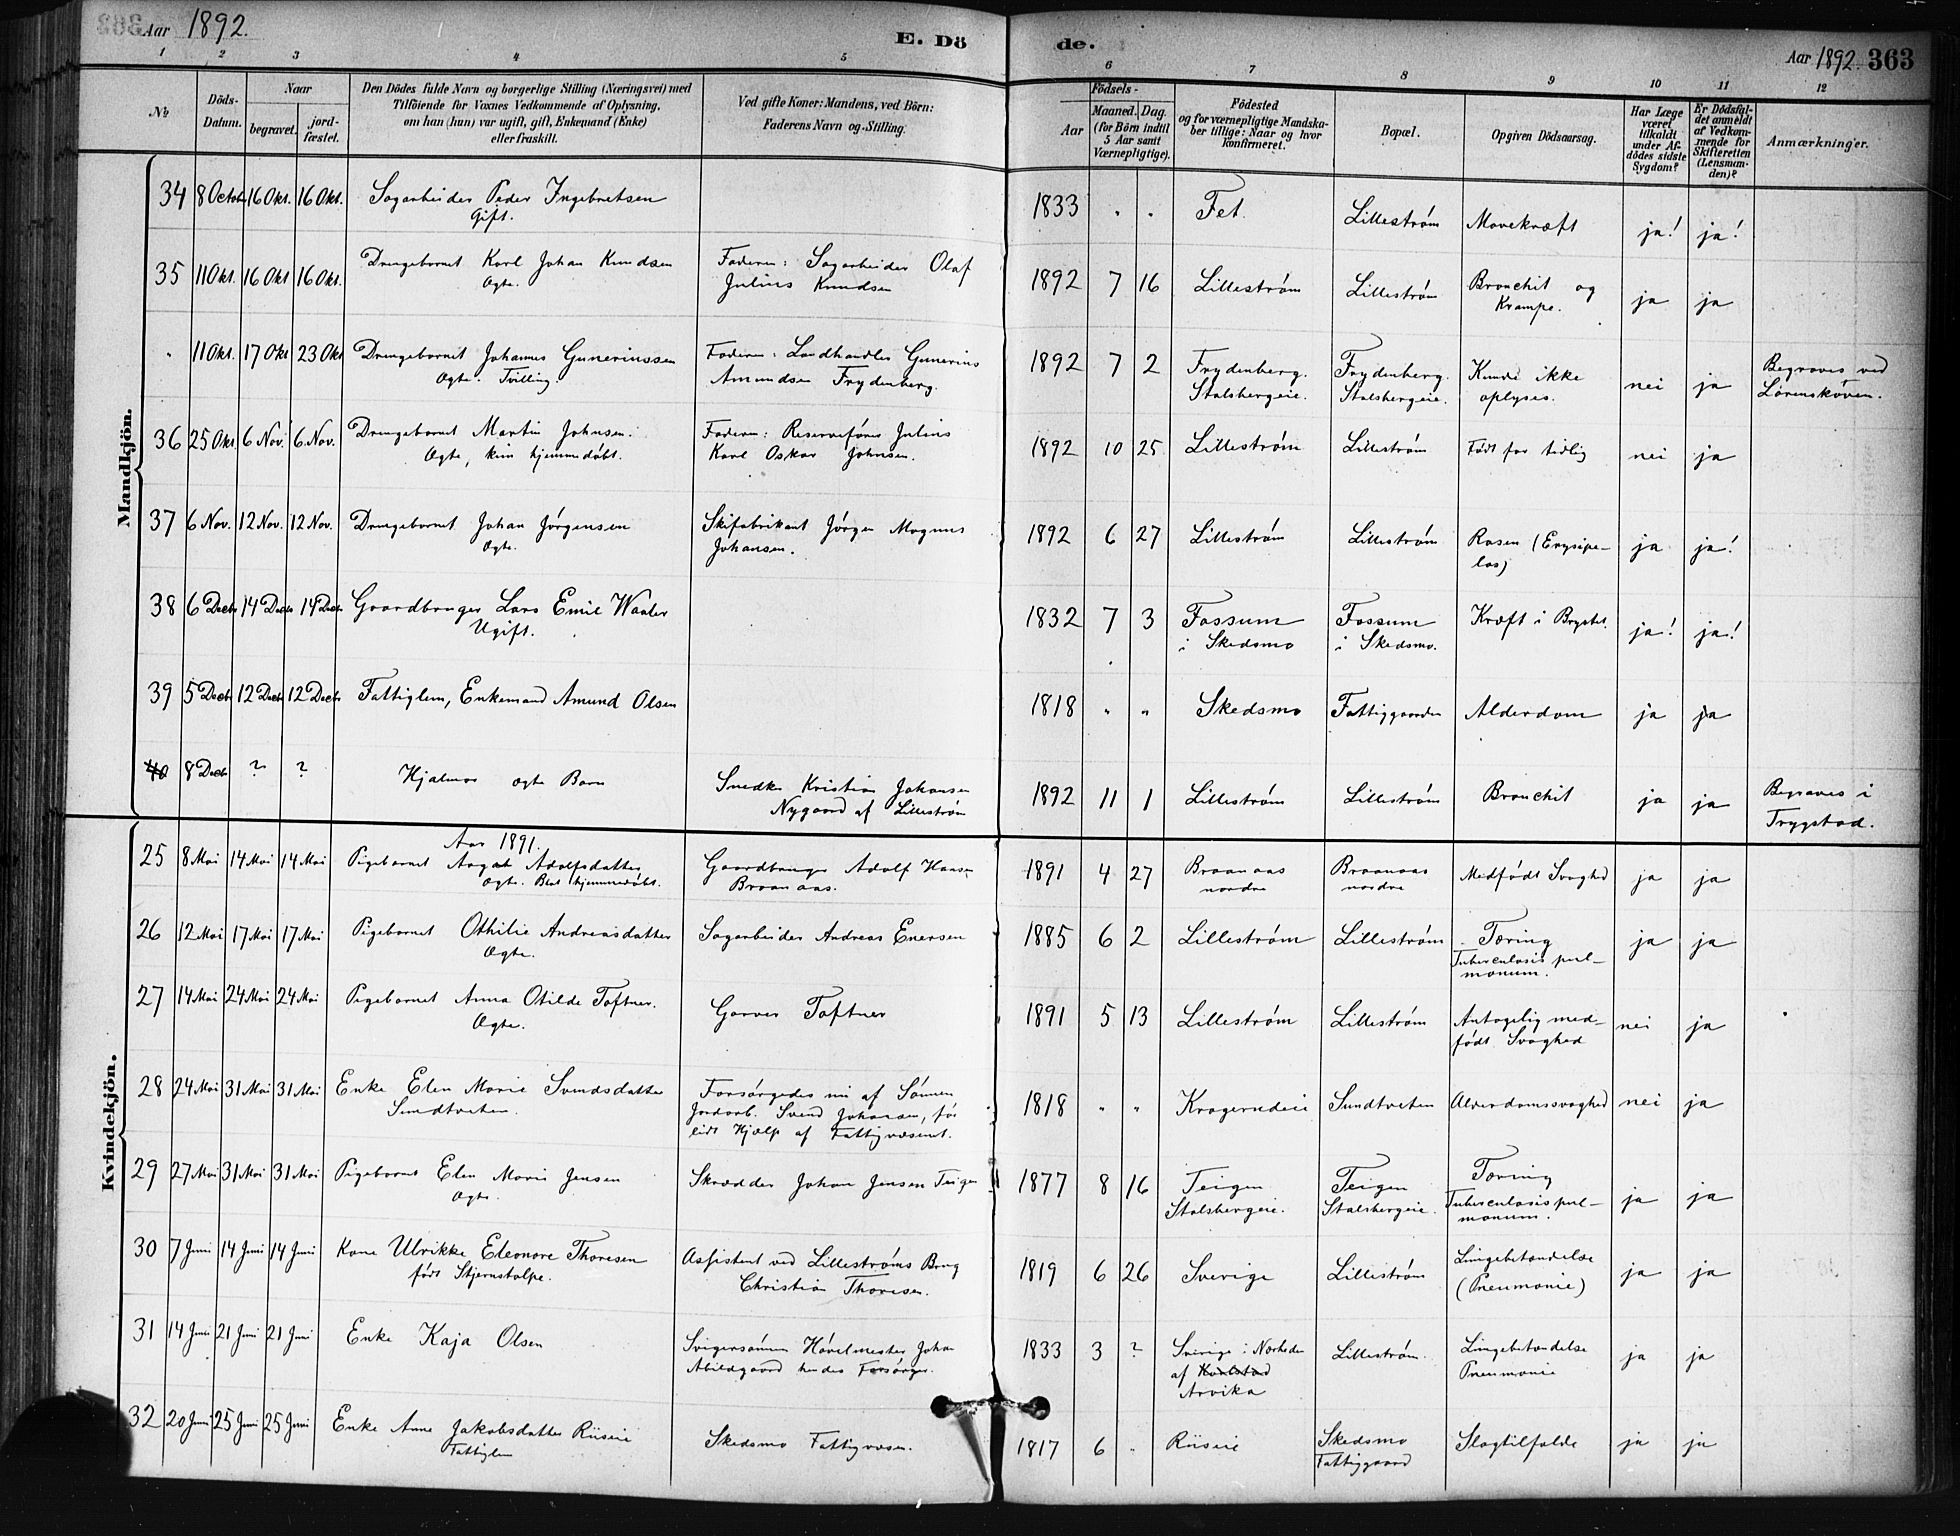 Aar 1892. E. Dö de. Aar 1892. 363
1 2 3 4 5 6 7 8 9 10 11 12
No
Döds-Datum.
Naar
begravet.
jord-fæstet.
Den Dödes fulde Navn og borgerlige Stilling (Næringsvei) med
Tilföiende for Voxnes Vedkommende af Oplysning,
om han (hun) var ugift, gift, Enkemand (Enke)
eller fraskilt.
Ved gifte Koner: Mandens, ved Börn:
Faderens Navn og Stilling.
Födsels-
Aar
Maaned. Dag.
(for Börn indtil
5 Aar samt
Værnepligtige).
Födested
og for værnepligtige Mandska-
ber tillige: Naar og hvor
konfirmeret.
Bopæl.
Opgiven Dödsaarsag.
Har Læge
været
tilkaldt
under Af-
dödes sidste
Sygdom?
Er Dödsfal-
det anmeldt
af Vedkom-
mende for
Skifteretten
(Lensman-
den)?
Anmærkninger.
Mandkjön.
34 8 Octob 16 Okt. 16 Okt. Sagarbeider Peder Ingebretsen 1833 " " Fet. Lillestrøm Mavekræft ja! ja!
Gift.
35 11 Okt. 16 Okt 16 Okt. Drengebarnet Karl Johan Knudsen Faderen: Sagarbeider Olaf 1892 7 16 Lillestrøm Lillestrøm Bronchit og ja ja
Ægte. Julius Knudsen Krampe.
" 11 Okt. 17 Okt 23 Okt Drengebarnet Johannes Gunerinssen Faderen: Landhandler Gunerius 1892 7 2 Frydenberg. Frydenberg. Kunde ikke nei ja Begraves ved
Ægte. Tvilling. Amundsen Frydenberg. Stalsbergeie. Stalsbergeie. oplyses. Lørenskoven.
36 25 Okt. 6 Nov. 6 Nov. Drengebarnet Martin Johnsen. Faderen: Reservefører Julius 1892 10 25 Lillestrøm Lillestrøm Født for tidlig nei ja
Ægte, kun hjemmedøbt. Karl Oskar Johnsen.
37 6 Nov. 12 Nov. 12 Nov. Drengebarnet Johan Jørgensen Skifabrikant Jørgen Magnus 1892 6 27 Lillestrøm Lillestrøm Rosen (Erysipe- ja ja!
Ægte. Johansen. las)
38 6 Decb 14 Decb 14 Decb Gaardbruger Lars Emil Waaler 1832 7 3 Fossum Fossum Kræft i Brystet. ja! ja!
Ugift. i Skedsmo i Skedsmo.
39 5 Decb 12 Decb 12 Decb Fattiglem, Enkemand Amund Olsen 1818 " " Skedsmo Fattiggaarden Alderdom ja ja
40 8 Decb ? ? Hjalmar ægte Barn Snedker Kristian Johansen 1892 11 1 Lillestrøm Lillestrøm Bronchit ja ja Begraves i
Nygaard af Lillestrøm Trygstad.
Kvindekjön.
Aar 1891.
25 8 Mai 14 Mai 14 Mai Pigebarnet Aagot Adolfsdatter Gaardbruger Adolf Hansen 1891 4 27 Braanaas Braanaas Medfødt Svaghed ja ja
Ægte. Blot hjemmedøbt. Braanaas. nordre nordre
26 12 Mai 17 Mai 17 Mai Pigebarnet Othilie Andreasdatter Sagarbeider Andreas Enersen 1885 6 2 Lillestrøm Lillestrøm Tæring ja ja
Ægte. Tuberculosis pul-
monum.
27 14 Mai 24 Mai 24 Mai Pigebarnet Anna Otilde Toftner. Garver Toftner 1891 5 13 Lillestrøm Lillestrøm Antagelig med- nei ja
Ægte. født Svaghed
28 24 Mai 31 Mai 31 Mai Enke Elen Marie Svendsdatter Forsørgedes nu af Sønnen 1818 " " Kragerudeie Sundtveten Alderdomssvaghed nei ja
Sundtveten. Jordarb. Svend Johansen, før
lidt Hjælp af Fattigvæsenet.
29 27 Mai 31 Mai 31 Mai Pigebarnet Elen Marie Jensen Skrædder Johan Jensen Teigen 1877 8 16 Teigen Teigen Tæring ja ja
Ægte. Stalsbergeie. Stalsbergeie. Tuberculosis pul-
monum.
30 7 Juni 14 Juni 14 Juni Kone Ulrikke Eleonore Thoresen Assistent ved Lillestrøms Brug 1819 6 26 Sverige Lillestrøm Lungebetændelse ja ja
født Stjernstolpe. Christian Thoresen. (Pneumonie)
31 14 Juni 21 Juni 21 Juni Enke Kaja Olsen Svigersønnen Høvelmester Johan 1833 3 ? Sverige i Nærheden Lillestrøm. Lungebetændelse ja ja
Abildgaard hendes Forsørger. af Karlstad Pneumonie
Arvika
32 20 Juni 25 Juni 25 Juni Enke Anne Jakobsdatter Riiseie Skedsmo Fattigvæsen. 1817 6 " Riiseie Skedsmo Slagtilfælde ja ja
Fattiglem Fattiggaard